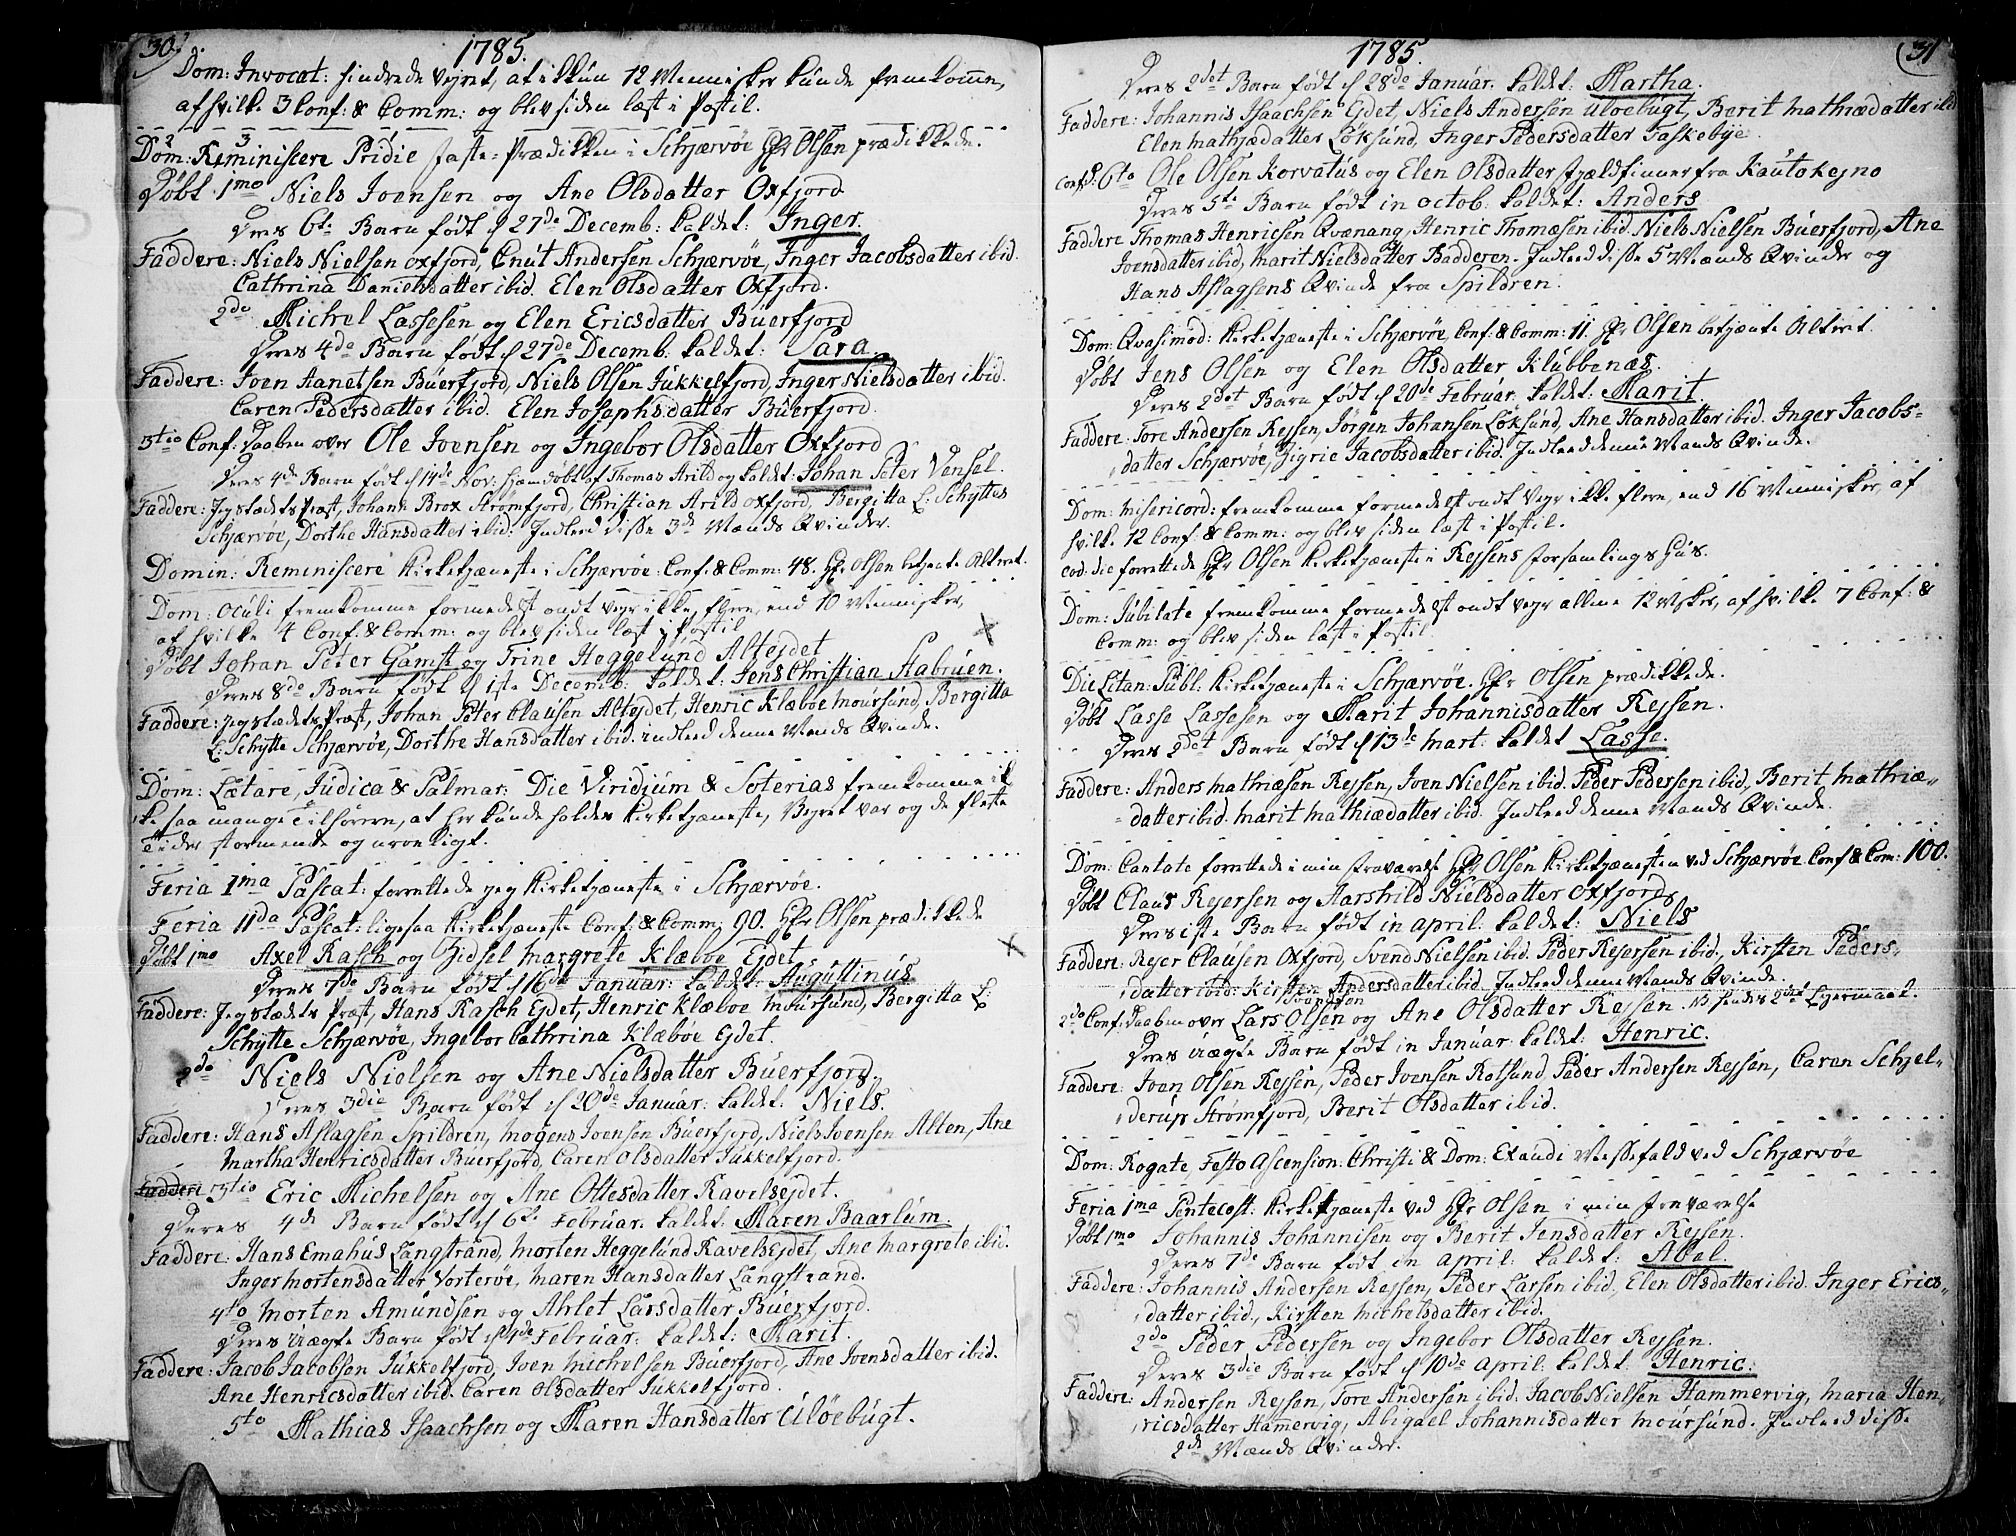 30.
1785.
Dom: Invocat: hindrede Vejret, at ikkun 12 Mennisker kunde fremkomme,
af hvilke 3 Conf: & Comm: og blev siden læst i Postil.
Dom: Reminiscere Pridie faste-Prædikken i Schjærvöe Hr Olsen prædikkede.
Döbt 1mo Niels Joensen og Ane Olsdatter Oxfjord
Deres 6te Barn födt d 27de Decemb: kaldet: Inger.
Faddere: Niels Nielsen Oxfjord, Cnut Andersen Schjærvöe, Inger Jacobsdatter ibid.
Cathrina Danielsdatter ibid. Elen Olsdatter Oxfjord.
2do Michel Lassesen og Elen Ericsdatter Buerfjord
Deres 4de Barn födt d 27de Decemb. kaldet: Sara
Faddere: Joen Aanetsen Buerfjord, Niels Olsen Jukkelfjord, Inger Nielsdatter ibid.
Caren Pedersdatter ibid. Elen Josephsdatter Buerfjord.
3tio Conf: Daaben over Ole Joensen og Ingebor Olsdatter Oxfjord
Deres 4de Barn födt d 14de Nov: hjemdöbt af Thomas Arild og kaldet: Johan Peter Vensel.
Faddere: Jeg stædets Præst, Johan Brox Strömfjord, Christian Arild Oxfjord, Bergitta L: Schyttes
Schjærvöe, Dorthe Hansdatter ibid: Indleed disse 3de Mænds Qvinder.
Domin: Reminiscere Kirketjæneste i Schjærvöe. Conf: & Comm: 48. Hr Olsen betjente Alteret.
Dom: Oculi fremkomme formedelst ondt Vejr ikke flere, end 10 Mennisker,
af hvilke 4 Conf: & Comm: og blev siden læst i Postil
Döbt Johan Peter Gamst og Trine Heggelund Altejdet
Deres 8de Barn födt d 1ste Decemb: kaldet: Jens Christian Stabruen.
Faddere: jeg stædets Præst, Johan Peter Clausen Altejdet, Henric Klæboe Moursund, Bergitta
L: Schytte Schjærvöe, Dorthe Hansdatter ibid. indleed denne Mands Qvinde.
Dom: Lætare, Judica & Palmar: Die Viridium & Soterias fremkomme ik-
ke saa mange Tilhörere, at her kunde holdes Kirketjæneste, Vejret var og de fleste
Tider stormende og uroeligt.
Feria 1ma Pascat: forrettede jeg Kirketjæneste i Schjærvöe.
Feria 11da Pascat: ligesaa Kirketjæneste Conf: & Comm: 90. Hr Olsen prædikkede
Döbt 1mo Axel Rasch og Zidsel Margrete Klæboe Ejdet
Deres 7de Barn födt d 16de Januar: kaldet: Augustinus
Faddere: Jeg stædets Præst, Hans Rasch Ejdet, Henric Klæboe Moursund, Bergitta L:
Schytte Schjærvöe, Ingebor Cathrina Klæböe Ejdet.
2do Niels Nielsen og Ane Nielsdatter Buerfjord.
Deres 3die Barn födt d 20de Januar: kaldet. Niels.
Faddere: Hans Aslagsen Spildren, Mogens Joensen Buerfjord, Niels Joensen Alten, Ane
Martha Henricsdatter Buerfjord, Caren Olsdatter Jukkelfjord.
Faddere 3tio Eric Michelsen og Ane Ottesdatter Ravelsejdet.
Deres 4de Barn födt d 6te Februar. kaldet: Maren Baarlum
Faddere: Hans Emahus Langstrand, Morten Heggelund Ravelsejdet, Ane Margrete ibid.
Inger Mortensdatter Vorteröe, Maren Hansdatter Langstrand.
4to Morten Amundsen og Ahlet Larsdatter Buerfjord.
Deres uægte Barn födt d 4de Februar: kaldet: Marit.
Faddere: Jacob Jacobsen Jukkelfjord, Joen Michelsen Buerfjord, Ane Joensdatter ibid.
Ane Henricsdatter ibid. Caren Olsdatter Jukkelfjord.
5to Mathias Isaachsen og Maren Hansdatter Ulöebugt.
1785.
31
Deres 2det Barn födt d 28de Januar. kaldet: Martha.
Faddere: Johannis Isaachsen Ejdet, Niels Andersen Ulöebugt, Berit Mathiædatter ibid
Elen Mathjædatter Löksund, Inger Pedersdatter Taskebye
Conf: D: 6to Ole Olsen Korvatus og Elen Olsdatter fjældfinner fra Kautokejno
Deres 5te Barn födt in Octob. kaldet: Anders
Faddere Thomas Henricsen Qvænang, Henric Thomæsen ibid. Niels Nielsen Buerfjord, Ane
Joensdatter ibid, Marit Nielsdatter Badderen. Indleed disse 5 Mænds Qvinder og
Hans Aslagsens Qvinde fra Spildren.
Dom: Qvasimod: Kirketjæneste i Schjærvöe, Conf: & Comm: 11. Hr Olsen betjente Alteret.
Döbt Jens Olsen og Elen Olsdatter Klubbenæs.
Deres 2det Barn födt d 20de Februar. kaldet: Marit.
Faddere: Tore Andersen Rejsen, Jörgen Johansen Löksund, Ane Hansdatter ibid. Inger Jacobs-
datter Schjærvöe, Zigrie Jacobsdatter ibid. Indleed denne Mands Qvinde.
Dom: Misericord: fremkomme formedelst ondt Vejr ikke flere, end 16 Mennisker, af
hvilke 12 Conf: & Comm: og blev siden læst i Postil.
eod: die forrettede Hr Olsen Kirketjæneste i Rejsens Forsamlings Huus.
Dom: Jubilate fremkomme formedelst ondt Vejr allene 12 Msker, af hvilke 7 Conf: &
Comm: og blev siden læst i Postil.
Die Litan: Publ: Kirketjæneste i Schjærvöe. Hr Olsen prædikkede.
Döbt Lasse Lassesen og Marit Johannisdatter Rejsen.
Deres 2det Barn födt d 13de Mart: kaldet Lasse.
Faddere: Anders Mathiæsen Rejsen, Joen Nielsen ibid. Peder Pedersen ibid, Berit Mathiæ-
datter ibid. Marit Mathiædatter ibid. Indleed denne Mands Qvinde.
Dom: Cantate forrettede i min fraværelse Hr Olsen Kirketjænesten ved Schjærvöe Conf & Com: 100.
Döbt Claus Rejersen og Aarshild Nielsdatter Oxfjord
Deres 1ste Barn födt in April. kaldet: Niels
Faddere: Rejer Clausen Oxfjord, Svend Nielsen ibid. Peder Rejersen ibid., Kirsten Peders-
datter ibid: Kirsten Andersdatter ibid. Indleed denne Mands Qvinde.
2do Conf: Daaben over Lars Olsen og Ane Olsdatter Rejsen. NB hendes 2det Lejermaal.
Deres uægte Barn födt in Januar: kaldet: Henric.
Faddere: Joen Olsen Rejsen, Peder Joensen Rotsund Peder Andersen Rejsen, Caren Schjel-
derup Strömfjord, Berit Olsdatter ibid.
Dom: Rogate Festo Ascension: Christi & Dom: Exaudi Messefald ved Schjærvöe
Feria 1ma Pentecost: Kirketjæneste ved Hr Olsen i min fraværelse
Döbt 1mo Johannis Johannisen og Berit Jensdatter Rejsen.
Deres 7de Barn födt in April: kaldet: Abel.
Faddere: Johannis Andersen Rejsen, Peder Larsen ibid. Elen Olsdatter ibid. Inger Erics-
datter ibid., Kirsten Michelsdatter ibid.
2do Peder Pedersen og Ingebor Olsdatter Rejsen.
Deres 3die Barn födt d 10de April. kaldet: Henric:
Faddere: Andersen Rejsen, Tore Andersen ibid. Jacob Nielsen Hammervig, Maria Hen-
ricsdatter Hamervig, Abigael Johannisdatter Moursund. Indleed disse
2de Mænds Qvinder.